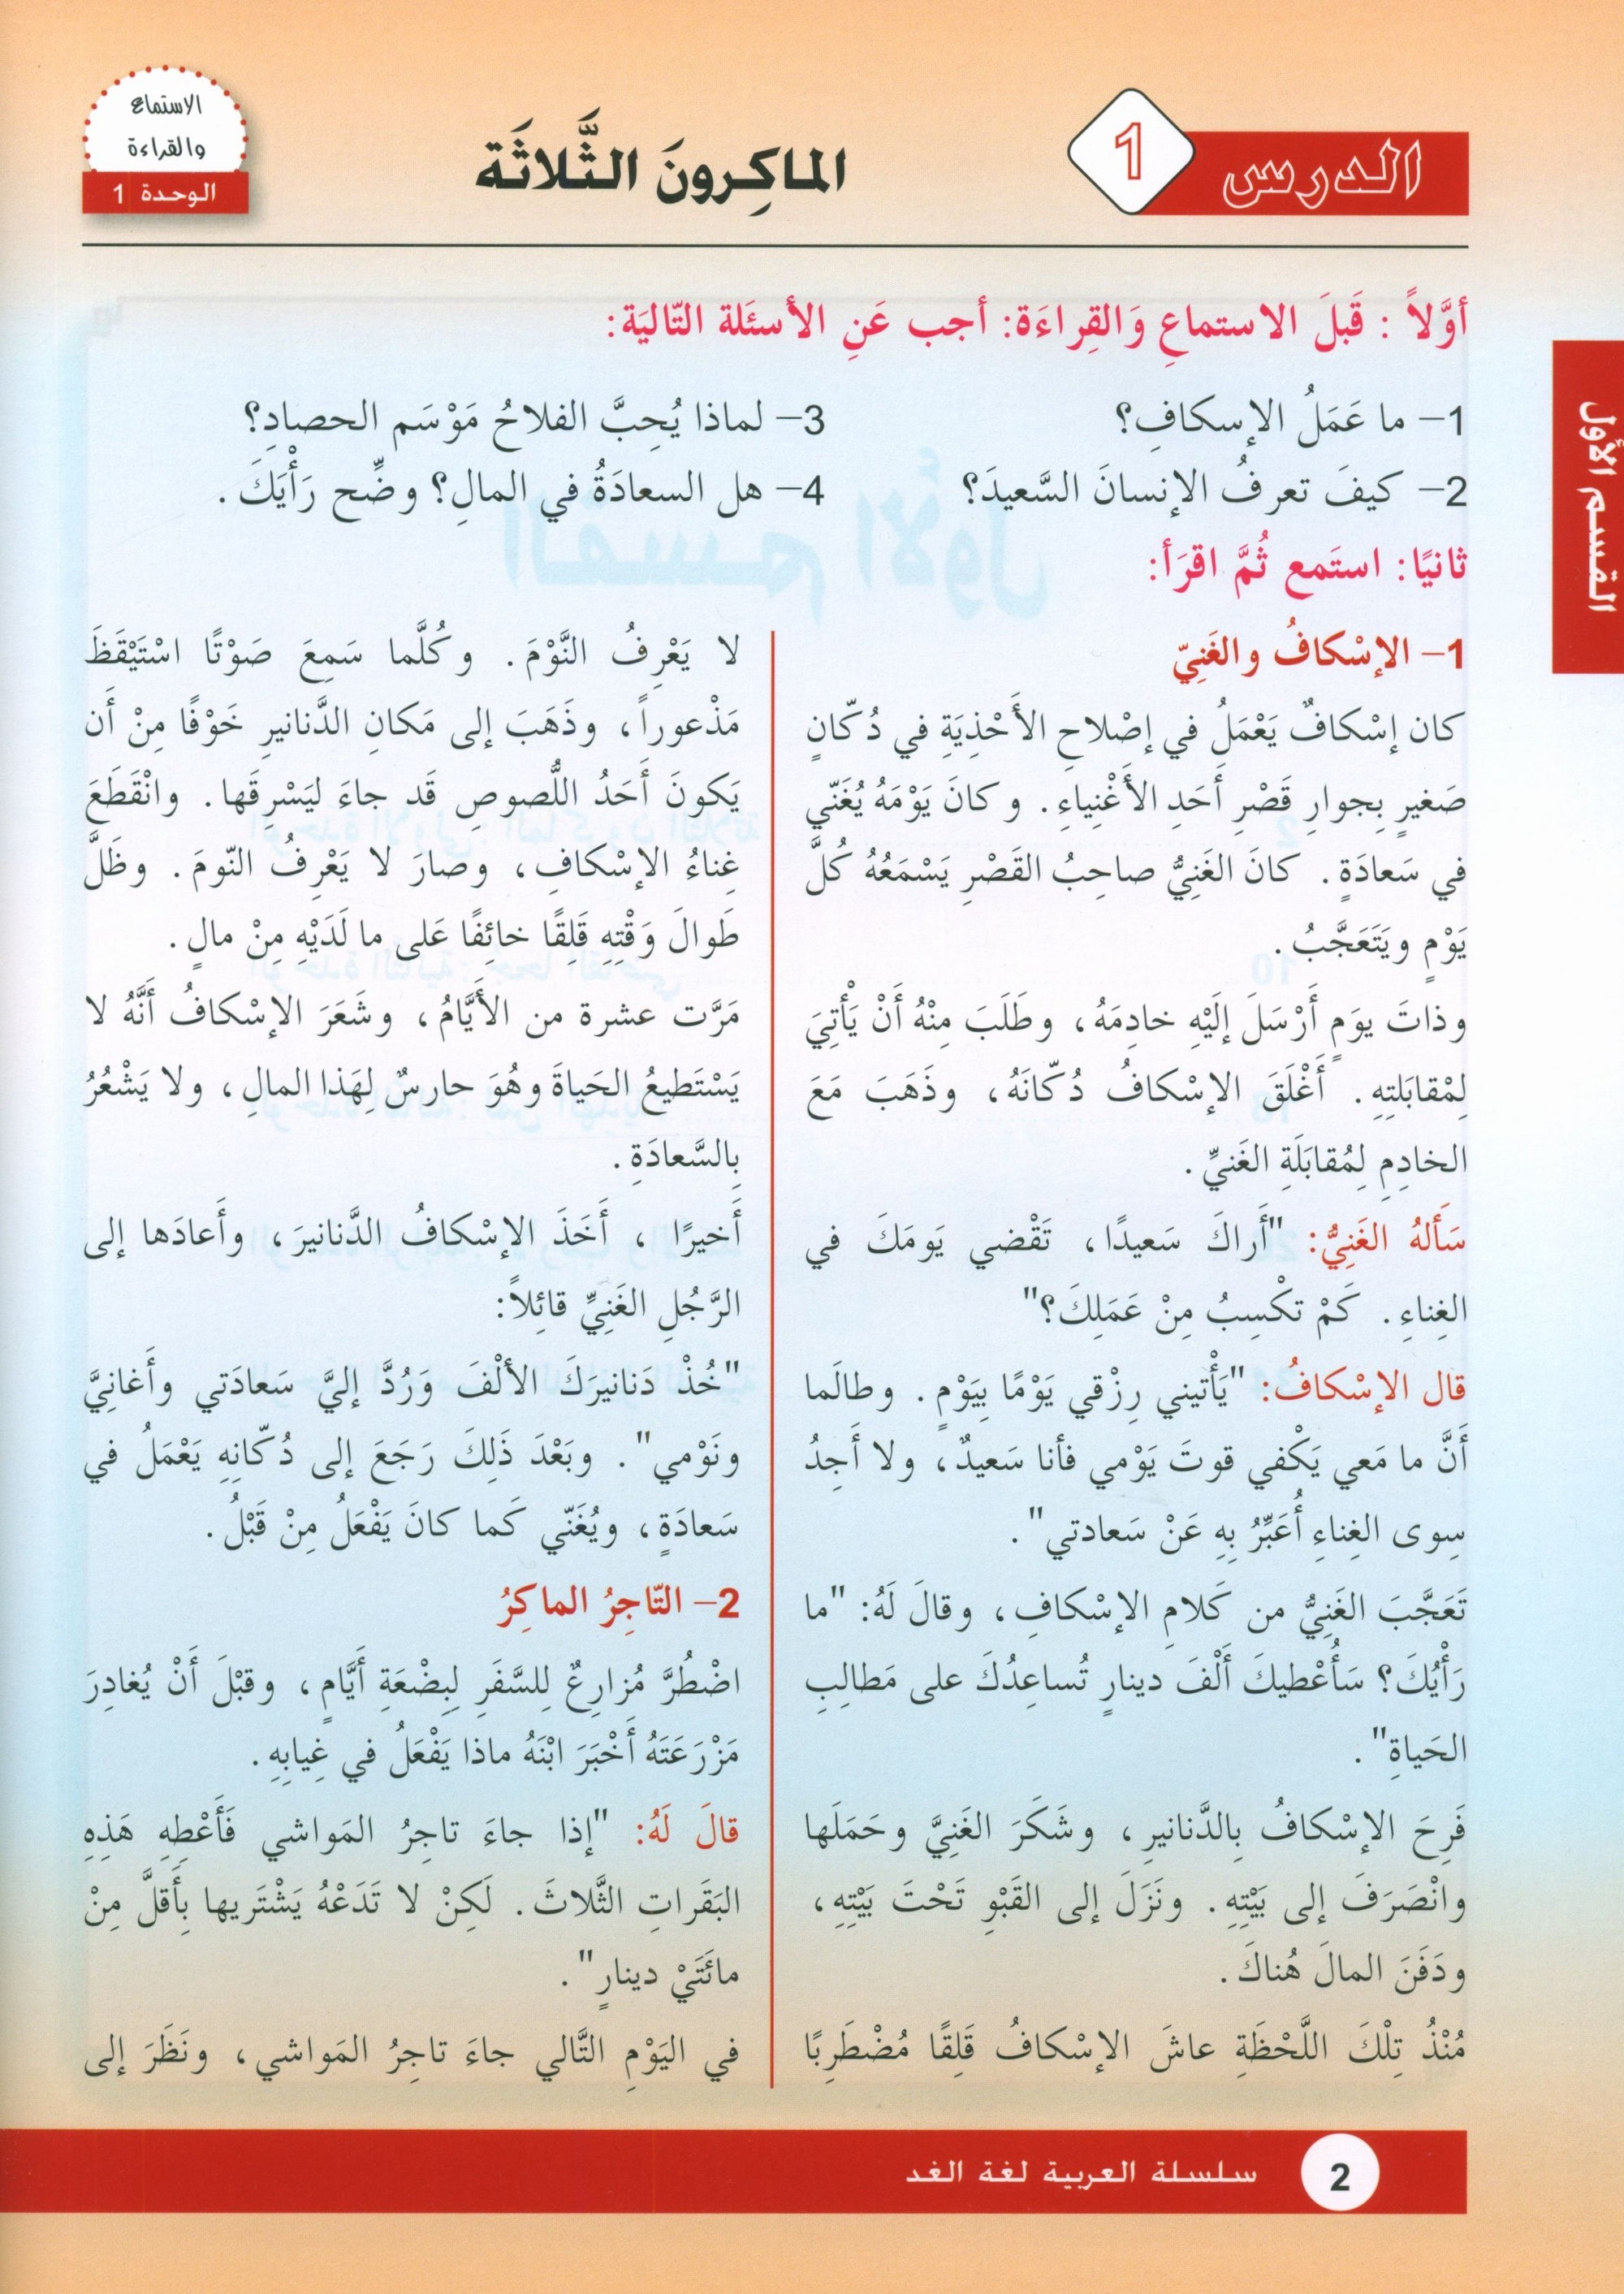 الدرس 1
الماكِرونَ الثَّلاثَة
الاستماع
والقراءة
الوحدة 1
القسم الأول
أوَّلاً : قَبلَ الاستماعِ وَالقِراءَة: أجب عَنِ الأسئَلة التّاليَة:
1– ما عَمَلُ الإسكافِ؟
2– كيفَ تعرفُ الإنسانَ السَّعيدَ؟
3– لماذا يُحِبَّ الفلاحُ مَوْسَم الحصادِ؟
4– هل السعادَةُ في المالِ؟ وضِّح رَأْيَكَ.
ثانيًا: استَمع ثُمَّ اقرَأ:
1– الإسْكافُ والغَنِيّ
كان إسْكافٌ يَعْمَلُ في إصْلاحِ الأَحْذِيَةِ في دُكّانٍ
صَغيرٍ بِجوارِ قَصْرِ أَحَدِ الأَغْنِياءِ. وكانَ يَوْمَهُ يُغَنّي
في سَعادَةٍ. كانَ الغَنِيُّ صاحِبُ القَصْرِ يَسْمَعُهُ كُلَّ
يَوْمٍ ويَتَعَجَّبُ.
وذاتَ يومَ أَرْسَلَ إلَيْهِ خادِمَهُ، وطَلَبَ مِنْهُ أَنْ يَأْتِيَ
لِمْقابَلتِهِ. أَغْلَقَ الإسْكافُ دُكّانَهُ، وذَهَبَ مَعَ
الخادِمِ لِمُقابَلَةِ الغَنيٍّ.
سَأَلهُ الغَنِيُّ: "أَراكَ سَعيدًا، تَقْضي يَومَكَ في
الغِناءِ. كَمْ تكْسِبُ مِنْ عَمَلِكَ؟"
قال الإسْكافُ: "يَأْتيني رِزْقي يَوْمًا بِيَوْمٍ. وطالَما
أَنَّ ما مَعي يَكْفي قوتَ يَوْمي فأنا سَعيدٌ، ولا أَجِدُ
سِوى الغِناءِ أُعَبِّرُ بِهِ عَنْ سَعادتي".
تَعَجَّبَ الغَنِيُّ من كَلامِ الإسْكافِ، وقالَ لَهُ: "ما
رَأْيُكَ؟ سَأُعْطيكَ أَلْفَ دينارٍ تُساعِدُكَ على مَطالِبِ
الحَياةِ".
فَرِحَ الإسْكافُ بِالدَّنانيرِ، وشَكَرَ الغَنِيَّ وحَمَلَها
وانْصَرَفَ إلى بَيْتِهِ. ونَزَلَ إلى القَبْوِ تَحْتَ بَيْتِهِ،
ودَفَنَ المالَ هُناكَ.
مُنْذُ تِلْكَ اللَّحْظَةِ عاشَ الإسْكافُ قَلِقًا مُضْطَرِبًا
لا يَعْرِفُ النَّوْمَ. وكُلَّما سَمِعَ صَوْتًا اسْتَيْقَظَ
مَذْعوراً، وذَهَبَ إلى مَكانِ الدَّنانيرِ خَوْفًا مِنْ أَن
يَكونَ أَحَدُ اللُّصوصِ قَد جاءَ ليَسْرِقَها. وانْقَطَعَ
غِناءُ الإسْكافِ، وصارَ لا يَعْرِفُ النّومَ. وظَلَّ
طَوالَ وَقْتِهِ قَلِقًا خائِفًا عَلى ما لَدَيْهِ مِنْ مالٍ.
مَرَّت عشرة من الأَيَّامُ، وشَعَرَ الإسْكافُ أَنَّهُ لا
يَسْتَطيعُ الحَياةَ وهُوَ حارسٌ لِهَذا المالِ، ولا يَشْعُرُ
بِالسَّعادَةِ.
أَخيرًا ، أَخَذَ الإسْكافُ الدَّنانيرَ، وأَعادَها إلى
الرَّجُلِ الغَنِيٍّ قائِلاً:
"خُذْ دَنانيرَكَ الألْفَ وَرُدَّ إليَّ سَعادَتي وأَغانِيَّ
ونَوْمي". وبَعْدَ ذَلِكَ رَجَعَ إلى دُكّانِهِ يَعْمَلُ في
سَعادَةٍ، ويُغَنّي كَما كانَ يَفْعَلُ مِنْ قَبْلُ.
2– التّاجِرُ الماكِرُ
اضْطُرَّ مُزارِعٌ لِلسَّفَرِ لِبِضْعَةِ أَيَّامٍ، وقبْلَ أَنْ يُغادِرَ
مَزْرَعَتَهُ أَخْبَرَ ابْنَهُ ماذا يَفْعَلُ في غِيابِهِ.
قالَ لَهُ: "إذا جاءَ تاجِرُ المَواشي فَأَعْطِهِ هَذِهِ
البَقَراتِ الثَّلاثَ. لَكِنْ لا تَدَعْهُ يَشْتَريها بِأَقلَّ مِنْ
مائَتَيْ دينارٍ".
في اليَوْمِ التَّالي جاءَ تاجِرُ المَواشي، ونَظَرَ إلى
2 سلسلة العربية لغة الغد